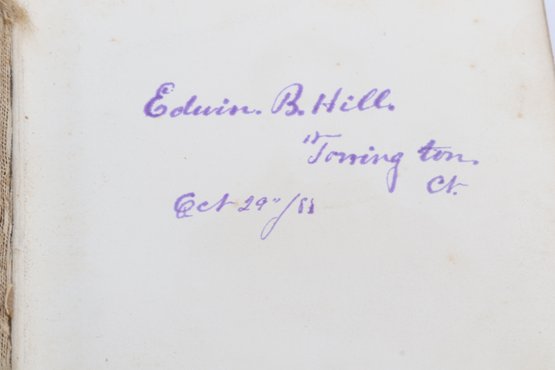 Edwin. B. Hill.
"Torrington.
Ct.
Oct 29"/11